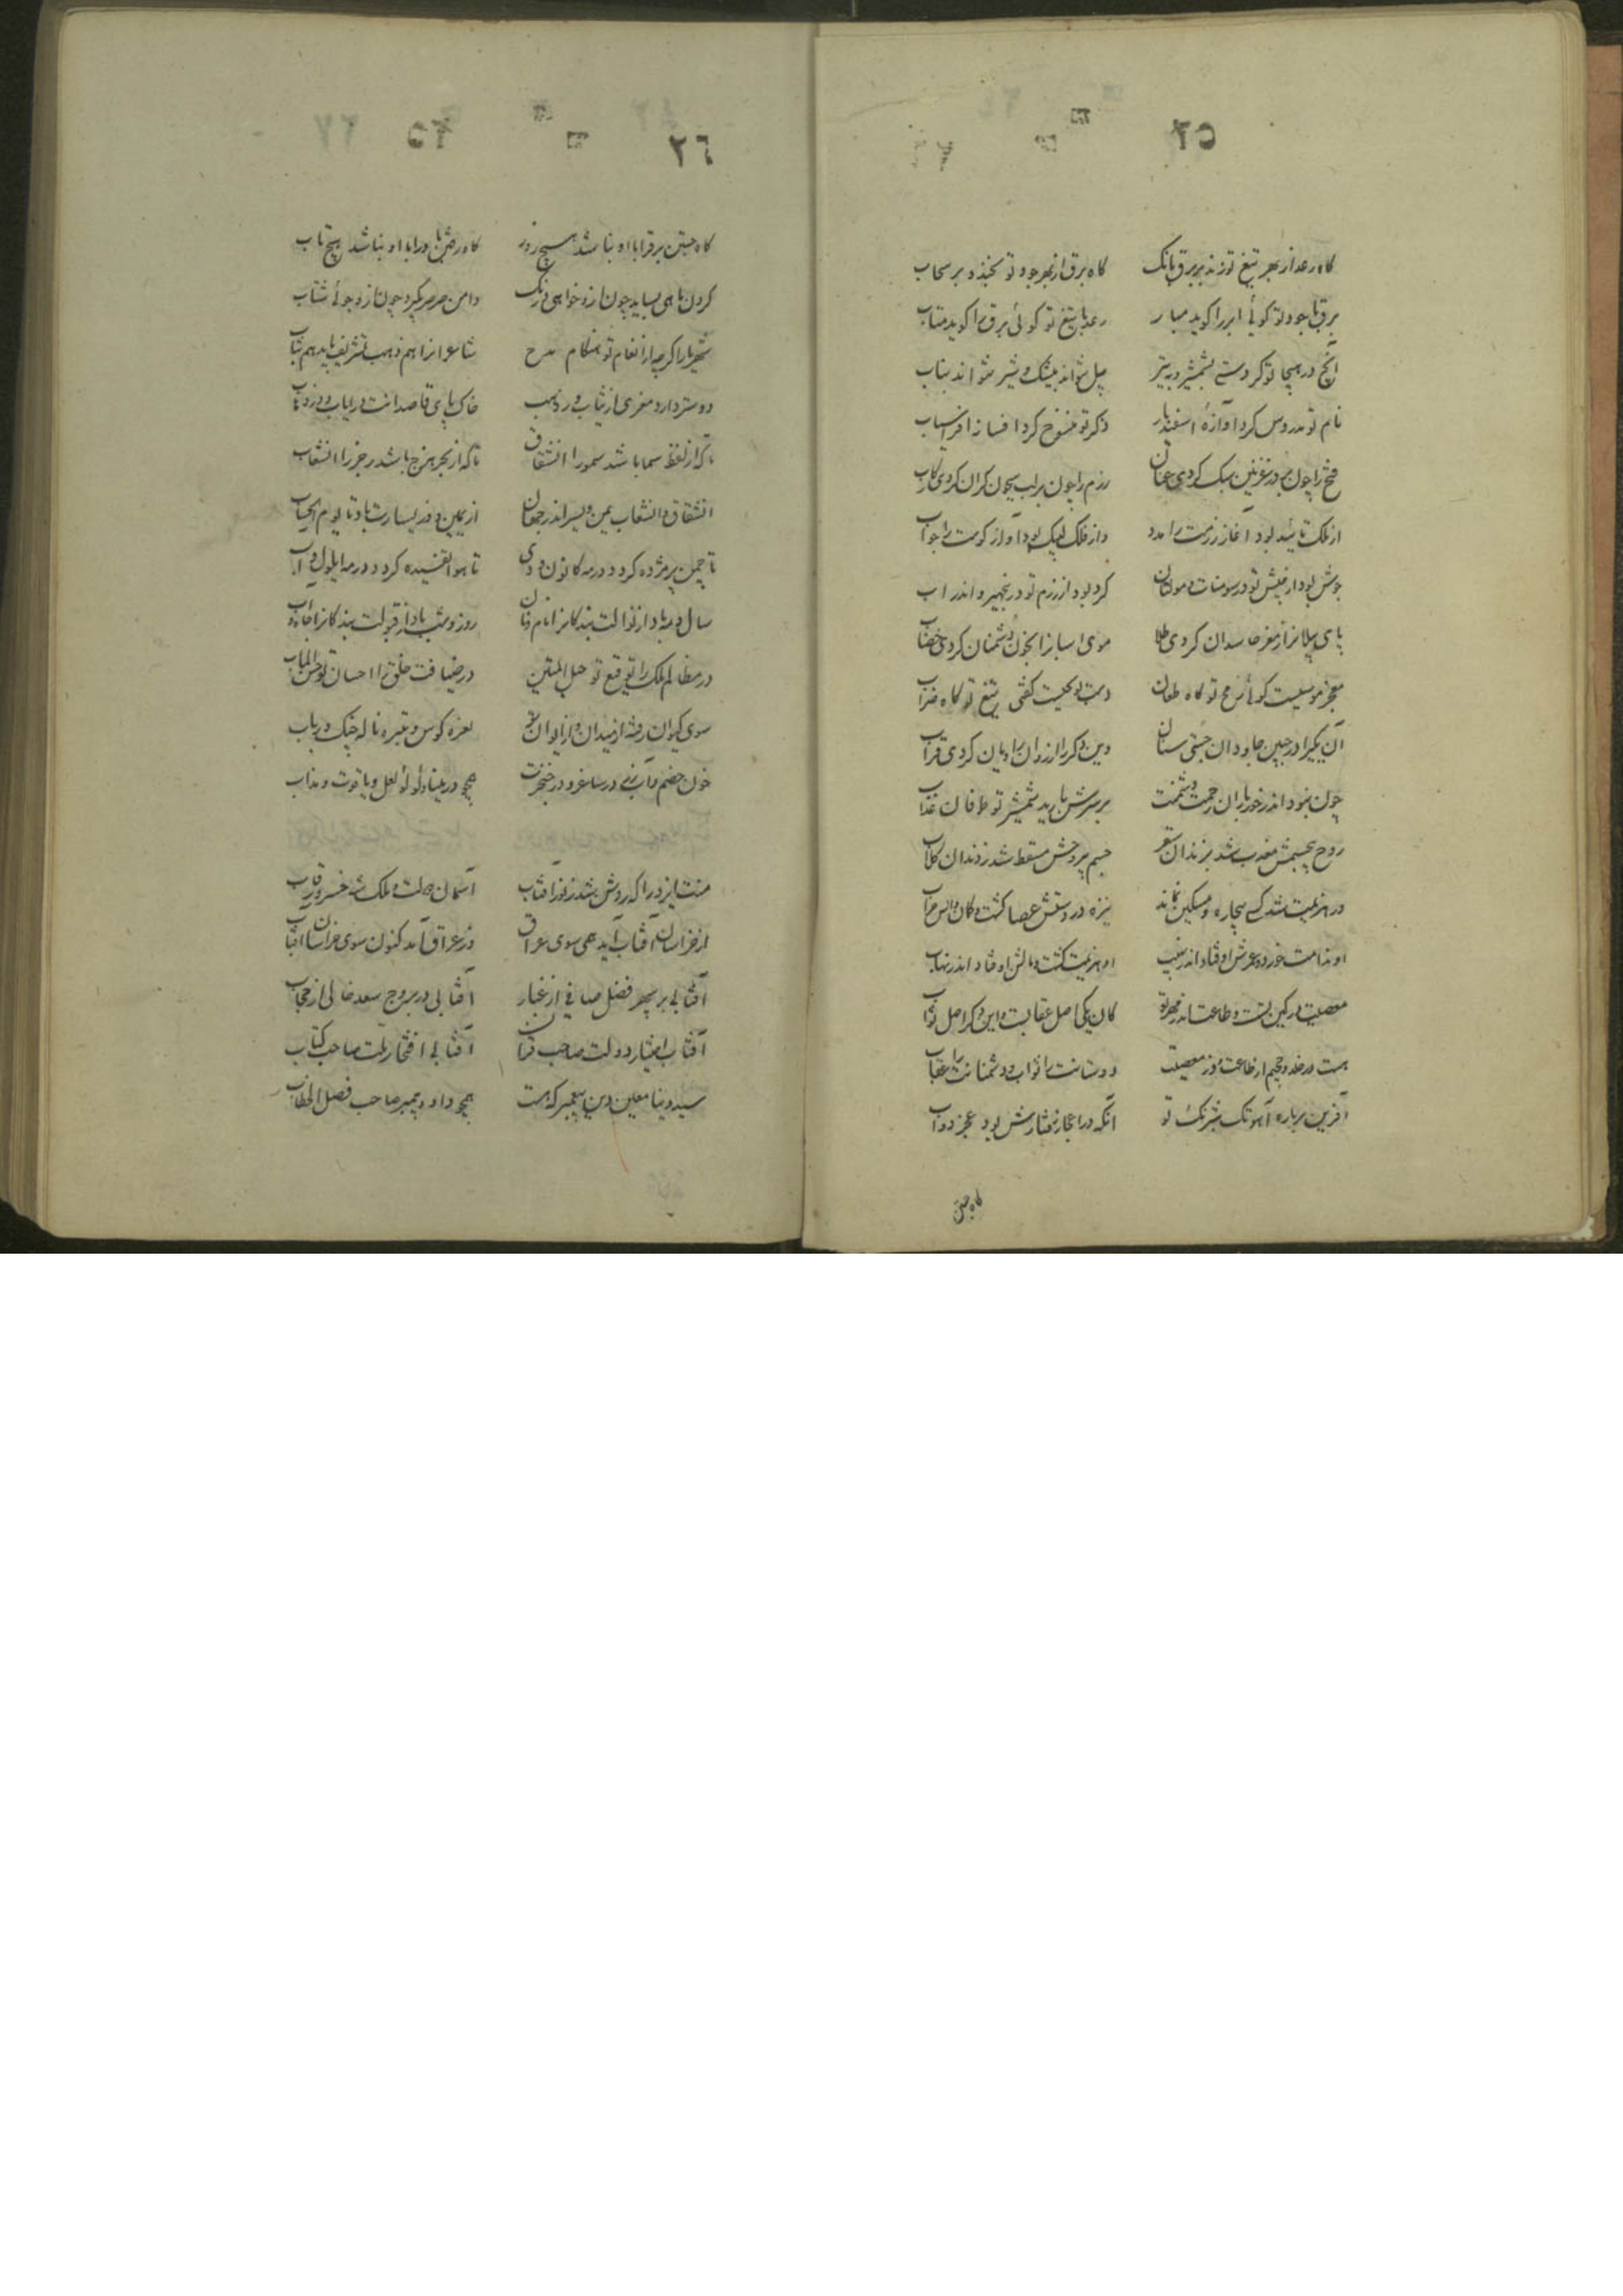 ٢٥
گاه رعد از بهر تیغ تو زند بر برق بانک گاه برق از بهر جود تو بخندد بر سحاب
برق با جود تو گوئی ابر را گوید مبار رعد با تیغ تو گوئی برق را گوید متاب
آنچ در هیجا تو کردستی بشمشیر و بتیر پیل نتواند بیشک و شیر نتواند بناب
نام تو مدروس کرد آوازهٔ اسفندیار ذکر تو منسوخ کرد افسانهٔ افراسیاب
فتح را چون بر در غزنین سبک کردی عنان رزم را چون بر لب جیحون گران کردی رکاب
از ملک تایید بود آغاز رزمت را مدد وز فلک لبیک بود آواز کوست را جواب
جوش بود از جیش تو در سومنات و مولتان گرد بود از رزم تو در پنجهیر و اندراب
پای پیلانرا ز مغز حاسدان کردی طلا موی اسبانرا بخون دشمنان کردی خضاب
معجز موسیست گوئی رمح تو گاه طعان دست تو گفتی تیغ تو گاه ضراب
آن یکیرا در جبین جاودان سنان وین دگر را
چون نبود اندر خور باران رحمت دشمنت بر سرش بارید شمشیر تو طوفان عذاب
روح بی جسمش معذب شد بزندان سقر جسم بی روحش مسقط شد ز دندان کلاب
در هزیمت شد کسی بیچاره و مسکین نماند نیزه در دستش عصا گشت
او ندامت خورد و عمرش اوفتاد اندر نشیب او هزیمت گشت و مالش اوفتاد اندر نهاب
معصیت در کین تست و طاعت اندر مهر تو کان یکی اصل عقابست و این دگر اصل ثواب
هست در خلد و جحیم از طاعت و ز معصیت دوستانت را ثواب و دشمنانت را عقاب
آفرین بر بارهٔ آهوتک شبرنگ تو آنکه در اعجاز رفتارش بود عجز دواب
گاه جستن
٢٦
گاه جستن برق را با او نباشد هیچ زور گاه رفتن باد را با او نباشد هیچ تاب
گردن ماهی بساید چون ازو خواهی درنگ دامن صرصر بگیرد چون ازو جوئی شتاب
شهریارا گرچه از انعام تو هنگام مدح شاعرانرا هم ذهب تشریف باید هم ثیاب
دوستر دارد معزی از ثیاب و از ذهب خاک پای قاصدانت در ایاب و در ذهاب
تا که از لفظ سما باشد سمو را انشقاق تا که از بحر هزج باشد رجز را انشعاب
انشقاق و انشعاب یمن و یسر اندر جهان از یمین و از یسارت باد تا یوم الحساب
تا چمن پژمرده گردد در مه کانون و دی تا هوا تفسیده گردد در مه ایلول و آب
سال و مه باد از نوالت بندگانرا نام و نان روز و شب باد از قبولت بندگانرا جاه و آب
در مظالم ملک را توقیع تو حبل المتین در ضیافت خلق را احسان تو حسن المآب
سوی کیوان رفته از میدان و از ایوان تو نعره کوس و تبیره ناله چنگ و رباب
خون خصم و آب رز در ساغر و در خنجرت همچو در مینا و لؤلؤ لعل و یاقوت مذاب
منت ایزد را که روشن شد ز نور آفتاب آسمان دولت و ملک شه خسرو رقاب
از خراسان آفتاب آید همی سوی عراق وز عراق آمد کنون سوی خراسان آفتاب
آفتابی بر سپهر فضل صافی از غبار آفتابی در بروج سعد خالی از حجاب
آفتاب اختیار دولت صاحب قران آفتابی افتخار ملت صاحب کتاب
سید دنیا معین دین پیغمبر که هست همچو داود پیمبر صاحب فصل الخطاب